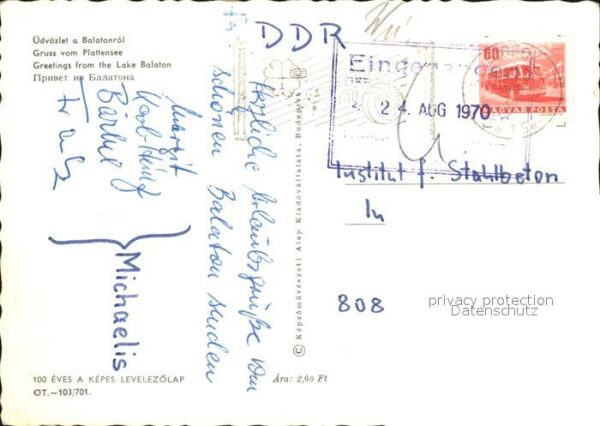 Üdvözlet a Balatonról
Gruss vom Plattensee
Greetings from the Lake Balaton
Привет из Балатона
Herzliche Urlaubsgrüße vom
schönen Balaton senden
Margit
Karl-Heinz
Bärbel
Michaelis
100 ÉVES A KÉPES LEVELEZŐLAP
OT.—103/701.
Ára: 2,60 Ft
© Képzőművészeti Alap Kiadóvállalata, Budapest
DDR
Eingegangen
24. AUG 1970
60
MAGYAR POSTA
Institut f. Stahlbeton
In
808
privacy protection
Datenschutz